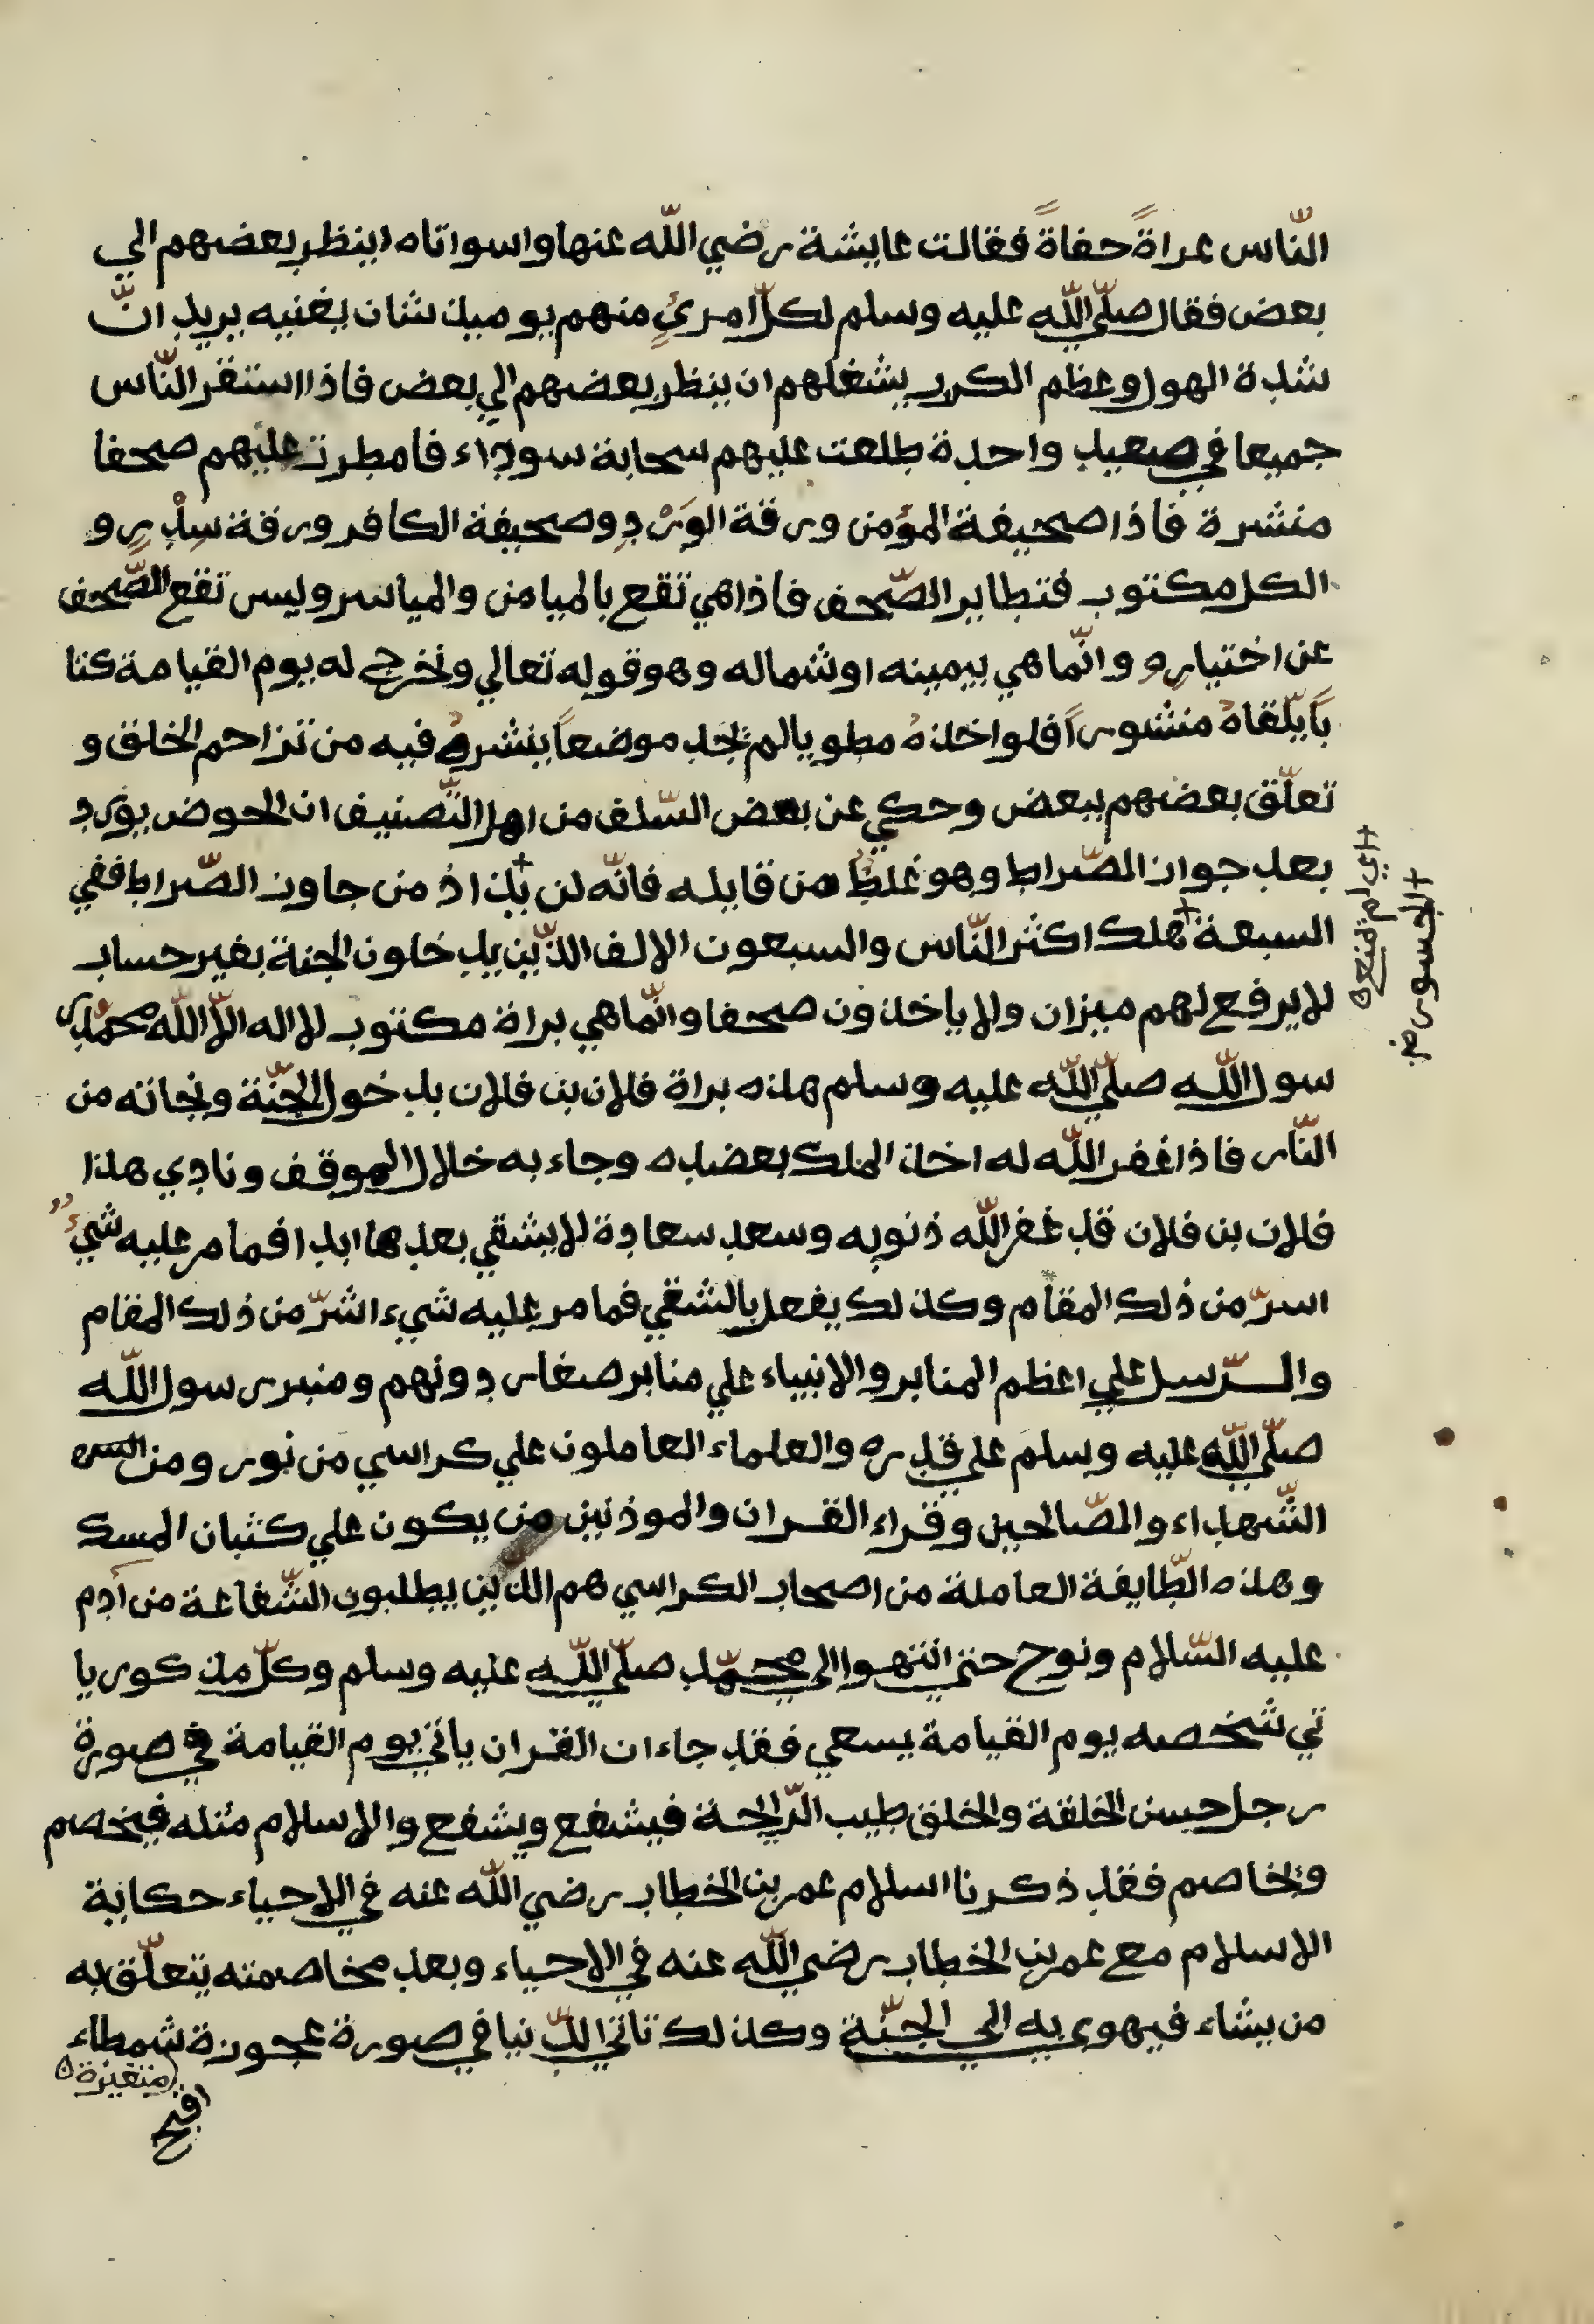 النّاس عراةً حفاةً فقالت عايشة رضي اللّه عنها واسواتاه اينظر بعضهم الي
بعض فقال صلّي اللّه عليه وسلم لكلّ امرئٍ منهم يوميذ شان يغنيه يريد انّ
شدة الهول وعظم الكرب يشغلهم ان ينظر بعضهم الي بعض فاذا استقر النّاس
جميعا في صعيد واحدة طلعت عليهم سحابة سوداء فامطرت عليهم صحفا
منشرة فاذا صحيفة المؤمن ورقة الوَرْدِ وصحيفة الكافر ورقة سِدْرٍ و
الكل مكتوب فتطاير الصّحف فاذا هي تقع بالميامن والمياسر وليس تقع الصّحف
عن اختيارِه وانّما هي بيمينه او شماله وهو قوله تعالي ونخرج له يوم القيامة كتا
باً يلّقاهُ منشوراً فلو اخذهُ مطويا لم يجد موضعاً ينشرهُ فيه من تزاحم الخلق و
تعلّق بعضهم ببعض وحكي عن بعض السّلف من اهل التّصنيف ان الحوض يورد
بعد جواز الصّراط وهو غلطٌ من قايله فانّه لن يلذ اذ من جاوز الصّراط ففي
السبعة هلك اكثر النّاس والسبعون الالف الذّين يدخلون الجنة بغير حساب
لا يرفع لهم ميزان ولا ياخذون صحفا وانّما هي براة مكتوب لا اله الّا اللّه محمّدٌ ر
سول اللّه صلّي اللّه عليه وسلم هذه براة فلان بن فلان بدخول الجنّة ونجاته من
النّار فاذا غفر اللّه له اخذ الملك بعضده وجاء به خلال الموقف ونادي هذا
فلان بن فلان قد غفر اللّه ذنوبه وسعد سعادة لا يشقي بعدها ابدا فما مر عليه شيءٌ
اسرّ من ذلك المقام وكذلك يفعل بالشقي فما مر عليه شيء اشرّ من ذلك المقام
والرّسل علي اعظم المنابر والانبياء علي منابر صغار دونهم ومنبر رسول اللّه
صلّي اللّه عليه وسلم علي قدره والعلماء العاملون علي كراسي من نور ومن
الشّهداء والصّالحين وقراء القران والموذنين من يكون علي كثبان المسك
وهذه الطّايفة العاملة من اصحاب الكراسي هم الذّين يطلبون الشّفاعة من آدم
عليه السّلام ونوح حتي انتهوا الي محمّد صلّي اللّه عليه وسلم وكلّ مذكور يا
تي شخصه يوم القيامة يسعي فقد جاء ان القران ياتي يوم القيامة في صورة
رجل حسن الخلقة والخلق طيب الرّايحة فيشفع ويشفع والاسلام مثله فيخصم
ويخاصم فقد ذكرنا اسلام عمر بن الخطاب رضي اللّه عنه في الاحياء حكاية
الاسلام مع عمر بن الخطاب رضي اللّه عنه في الاحياء وبعد مخاصمته يتعلّق به
من يشاء فيهوي به الي الجنّة وكذلك تاتي الدّنيا في صورة عجوزة شمطاء
متغيزة
اقبح
اي لم تمنع
الجسور